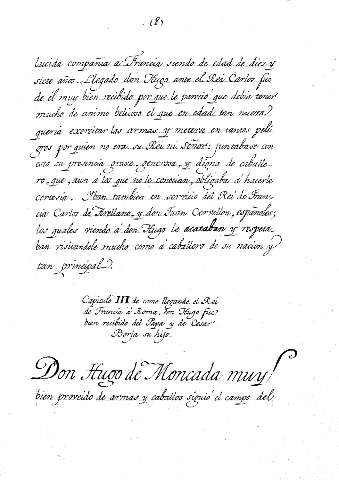 (8)
lucida compañia á Francia siendo de edad de diez y
siete años. Llegado don Hugo ante el Rei Carlos fue
de él muy bien recibido por que le pareció que debia tener
mucho de animo belicoso el que en edad tan tierna
queria exercitar las armas y meterse en tantos peli
gros por quien no era su Rei ni Señor: juntabase con
esto su presencia grave, generosa, y digna de caballe-
ro, que, aun á los que no le conocian, obligaba á hacerle
cortesia. Iban tambien en servicio del Rei de Fran-
cia Carlos de Arellano, y don Juan Cervellon, españoles;
los quales viendo á don Hugo le acataban y respeta-
ban visitandole mucho como á caballero de su nacion y
tan principal.
Capitulo III de como llegando el Rei
de Francia á Roma, don Hugo fue
bien recibido del Papa y de Cesar
Borja su hijo.
Don Hugo de Moncada muy
bien proveido de armas y caballos siguió el campo del